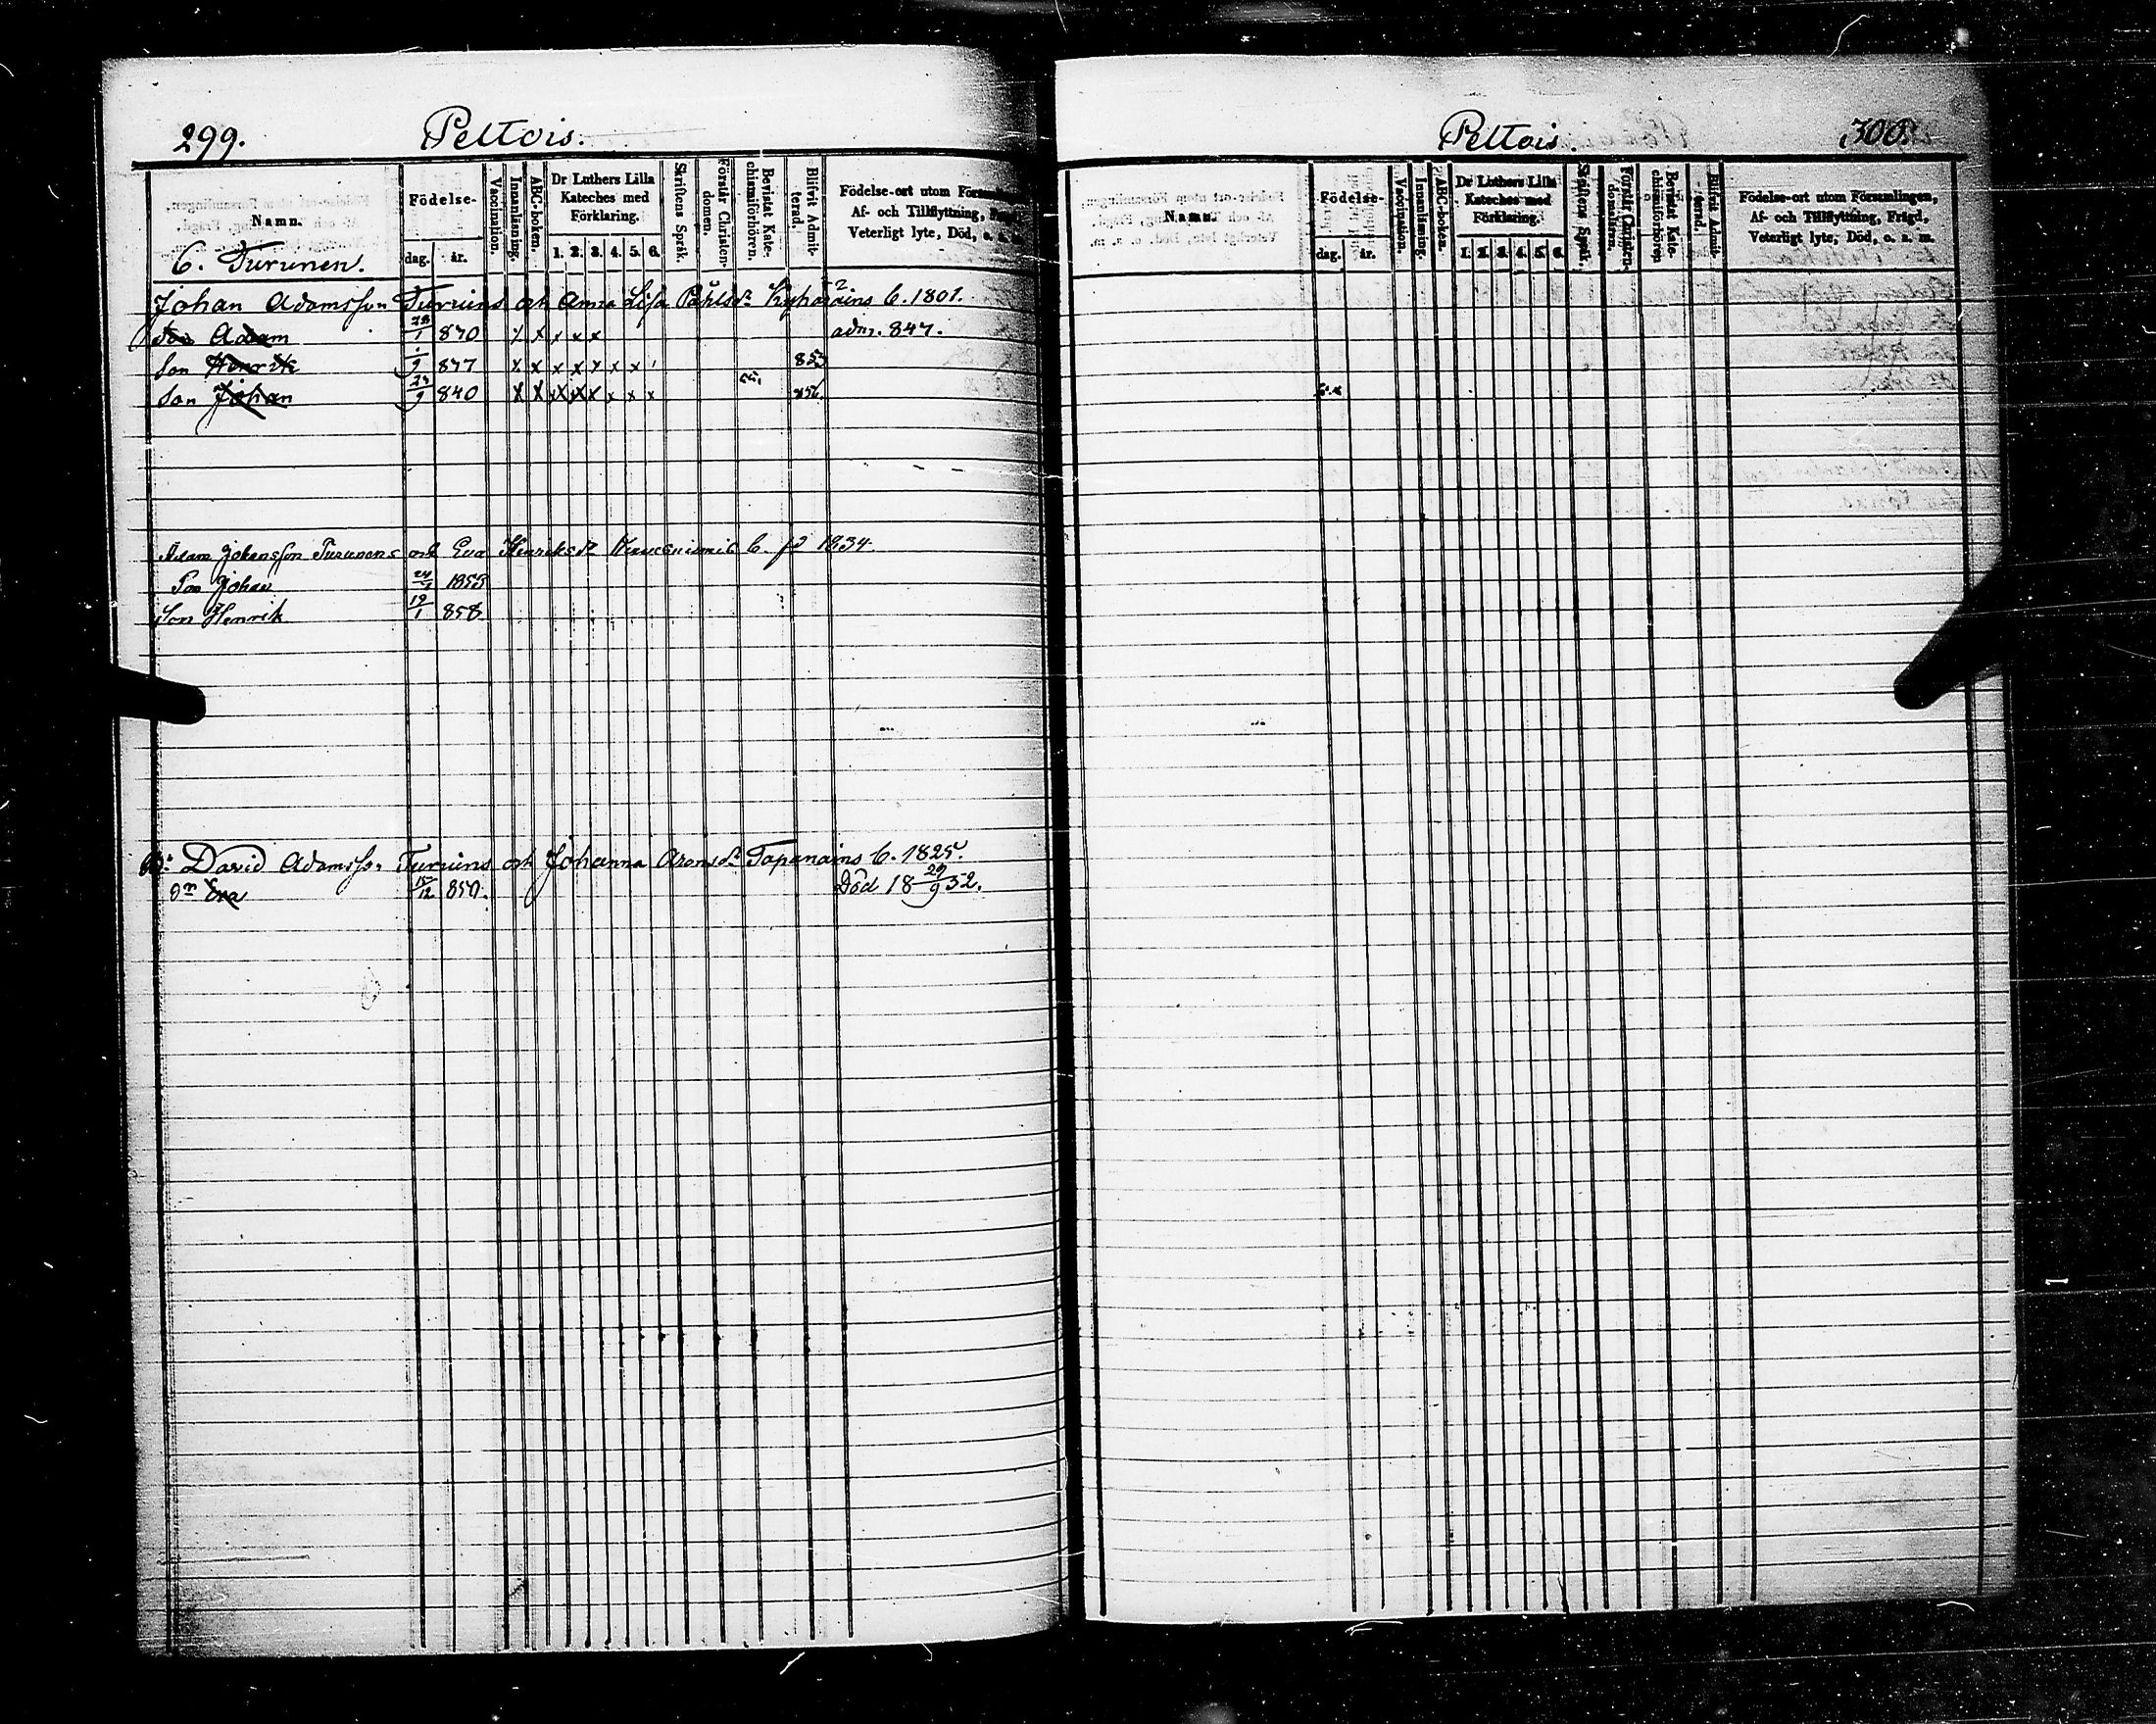 299. Peltois.
Namn. Födelse- dag. år. Vaccination. Innanläsning. ABC-boken. Dr Luthers Lilla Kateches med Förklaring. 1. 2. 3. 4. 5. 6. Skriftens Språk. Förstår Christendomen. Bevistat Katechismiförhören. Blifvit Admitterad. Födelse-ort utom
Af- och Tillflyttning,
Veterligt lyte, Död, o. a. m.
6. Turunen.
Johan Adamsson Turuins och Anna Lisa Påhlsdr C. 1801.
Son Adam 28/1 830 x x x x x adm. 847.
Son Henrik 1/9 837 x x x x x x x 853
Son Johan 24/9 840 x x x x x x x x 856
Adam Johansson Turunens och Eva Henriksdr C. f2 1834.
Son Johan 1853
Son Henrik 19/1 858.
David Adamss. Turuins och Johanna Aronsdr Tapanains C. 1825.
Dr Eva 15/12 850. Död 18 29/9 52.
Peltois. 300.
Namn. Födelse- dag. år. Vaccination. Innanläsning. ABC-boken. Dr Luthers Lilla Kateches med Förklaring. 1. 2. 3. 4. 5. 6. Skriftens Språk. Förstår Christendomsläran. Bevistat Katechismiförhören Blifvit Admitterad. Födelse-ort utom Församlingen,
Af- och Tillflyttning, Frägd,
Veterligt lyte, Död, o. a. m.